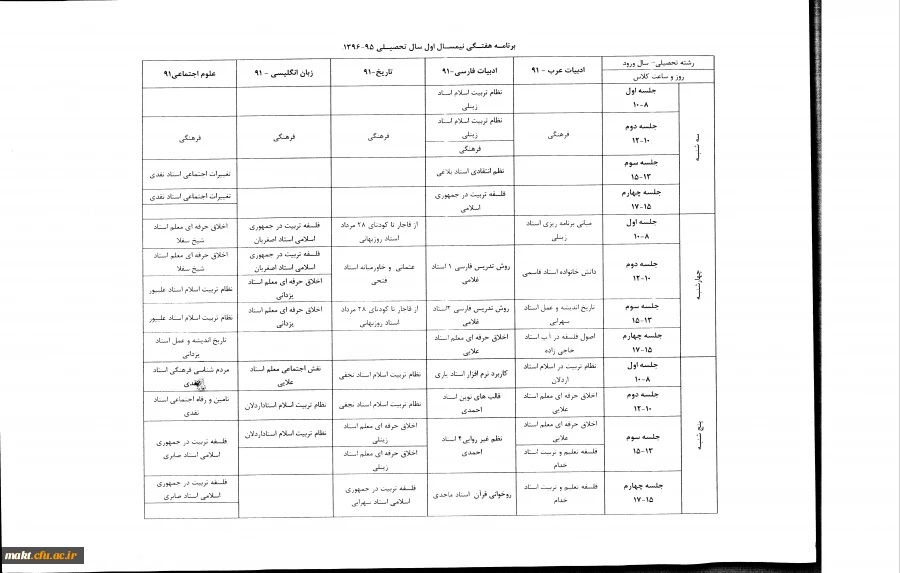 برنامه هفتگی نیمسال اول سال تحصیلی ۹۵-۱۳۹۶
رشته تحصیلی- سال ورود
روز و ساعت کلاس
ادبیات عرب - ۹۱
ادبیات فارسی-۹۱
تاریخ-۹۱
زبان انگلیسی - ۹۱
علوم اجتماعی۹۱
سه شنبه
جلسه اول
۱۰-۸
نظام تربیت اسلام استاد
زینلی
جلسه دوم
۱۲-۱۰
فرهنگی
نظام تربیت اسلام استاد
زینلی
فرهنگی
فرهنگی
فرهنگی
فرهنگی
جلسه سوم
۱۵-۱۳
نظم انتقادی استاد بلاغی
تغییرات اجتماعی استاد نقدی
جلسه چهارم
۱۷-۱۵
فلسفه تربیت در جمهوری
اسلامی
تغییرات اجتماعی استاد نقدی
چهارشنبه
جلسه اول
۱۰-۸
مبانی برنامه ریزی استاد
زینلی
از قاجار تا کودتای ۲۸ مرداد
استاد روزبهانی
فلسفه تربیت در جمهوری
اسلامی استاد اصغریان
اخلاق حرفه ای معلم استاد
شیخ سقلا
جلسه دوم
۱۲-۱۰
دانش خانواده استاد قاسمی
روش تدریس فارسی ۱ استاد
غلامی
عثمانی و خاورمیانه استاد
فتحی
فلسفه تربیت در جمهوری
اسلامی استاد اصغریان
اخلاق حرفه ای معلم استاد
یزدانی
اخلاق حرفه ای معلم استاد
شیخ سقلا
نظام تربیت اسلام استاد علیپور
جلسه سوم
۱۵-۱۳
تاریخ اندیشه و عمل استاد
سهرابی
روش تدریس فارسی ۲استاد
غلامی
از قاجار تا کودتای ۲۸ مرداد
استاد روزبهانی
اخلاق حرفه ای معلم استاد
یزدانی
نظام تربیت اسلام استاد علیپور
جلسه چهارم
۱۷-۱۵
اصول فلسفه در آ ب استاد
حاجی زاده
اخلاق حرفه ای معلم استاد
علایی
تاریخ اندیشه و عمل استاد
یزدانی
پنج شنبه
جلسه اول
۱۰-۸
نظام تربیت در اسلام استاد
اردلان
کاربرد نرم افزار استاد یاری
نظام تربیت اسلام استاد نجفی
نقش اجتماعی معلم استاد
علایی
مردم شناسی فرهنگی استاد
نقدی
جلسه دوم
۱۲-۱۰
اخلاق حرفه ای معلم استاد
علایی
قالب های نوین استاد
احمدی
نظام تربیت اسلام استاد نجفی
نظام تربیت اسلام استاداردلان
تامین و رفاه اجتماعی استاد
نقدی
جلسه سوم
۱۵-۱۳
اخلاق حرفه ای معلم استاد
علایی
فلسفه تعلیم و تربیت استاد
خدام
نظم غیر روایی۴ استاد
احمدی
اخلاق حرفه ای معلم استاد
زینلی
اخلاق حرفه ای معلم استاد
زینلی
نظام تربیت اسلام استاداردلان
فلسفه تربیت در جمهوری
اسلامی استاد صابری
جلسه چهارم
۱۷-۱۵
فلسفه تعلیم و تربیت استاد
خدام
روخوانی قرآن استاد ماجدی
فلسفه تربیت در جمهوری
اسلامی استاد سهرابی
فلسفه تربیت در جمهوری
اسلامی استاد صابری
makt.cfu.ac.ir